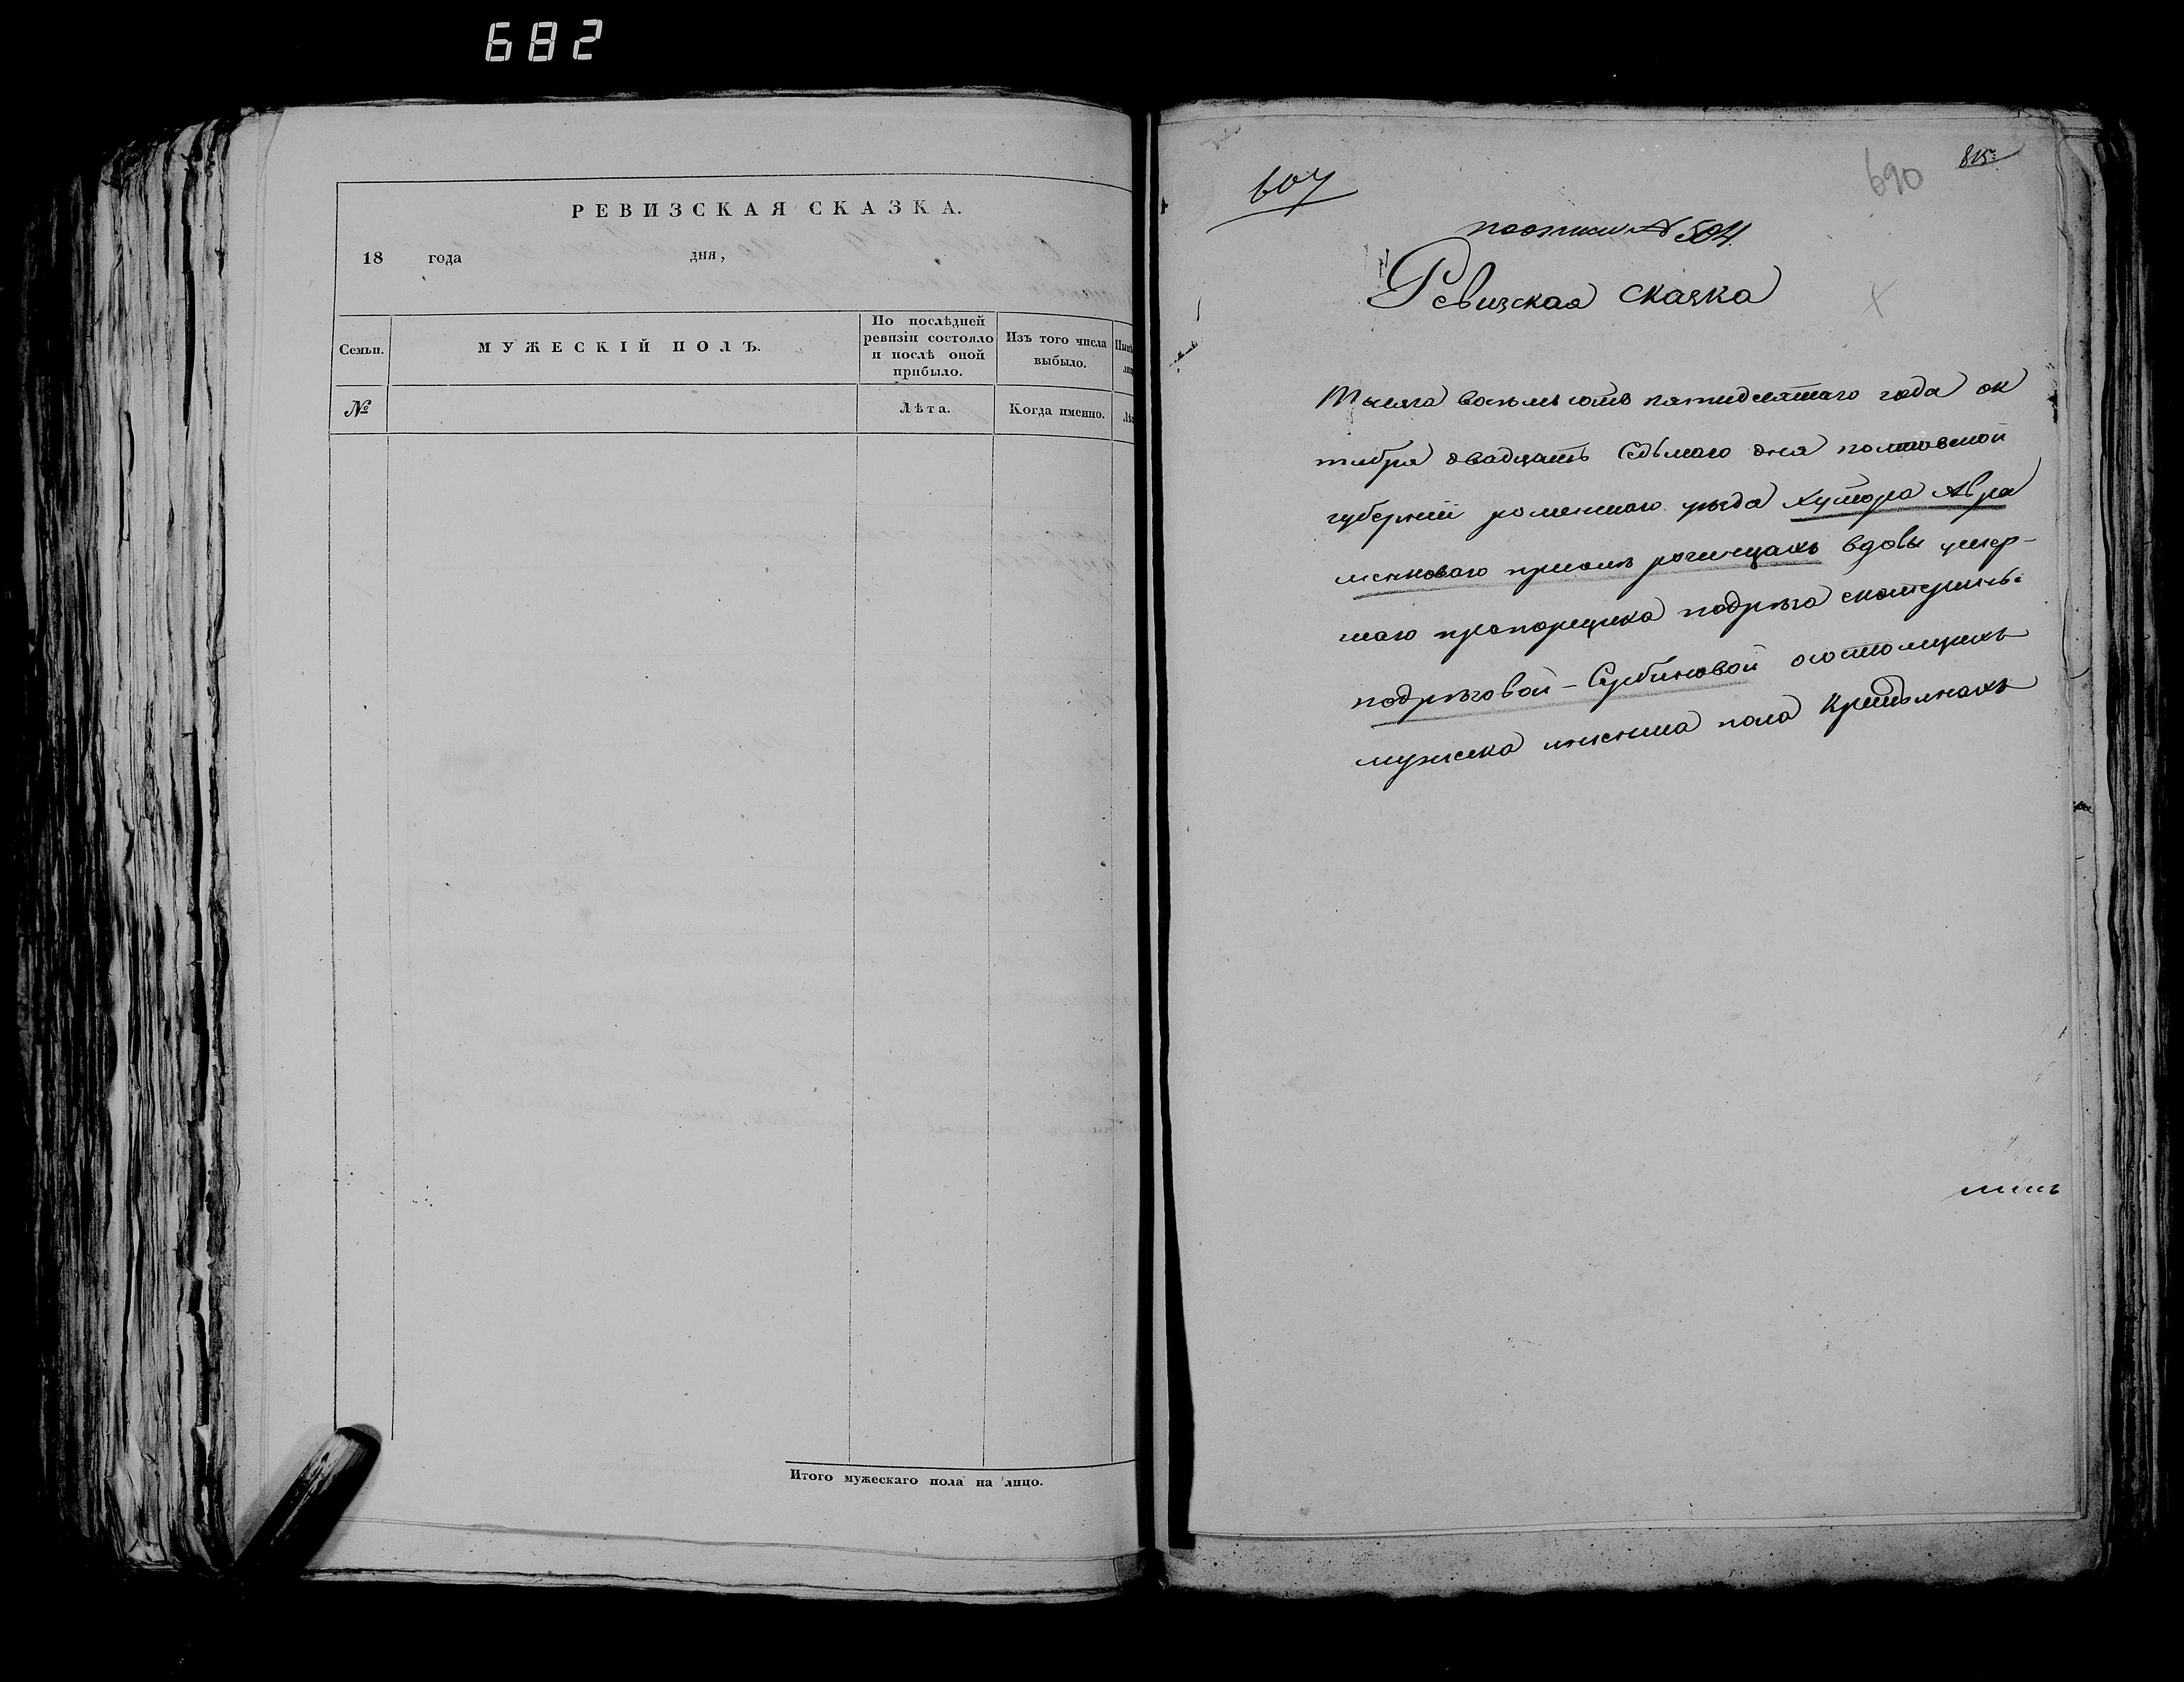 682
РЕВИЗСКАЯ СКАЗКА.
18 года дня,
Семьи.
МУЖЕСКІЙ ПОЛЪ.
По послѣдней
ревизіи состояло
и послѣ оной
прибыло.
Изъ того числа
выбыло.
№
Лѣта.
Когда именно.
Итого мужескаго пола на лицо.
607
690
815
№ 504
Ревизская сказка
Тысяча восемь сотъ пятидесятаго года ок
тября двадцать седьмаго дня полтавской
губерніи роменскаго уезда хутора Авра
менковаго вдовы умер-
шаго прапорщика подрѣза екатерины
подрѣзовой-Сербиновой о состоящихъ
мужеска иженска пола крестьянахъ